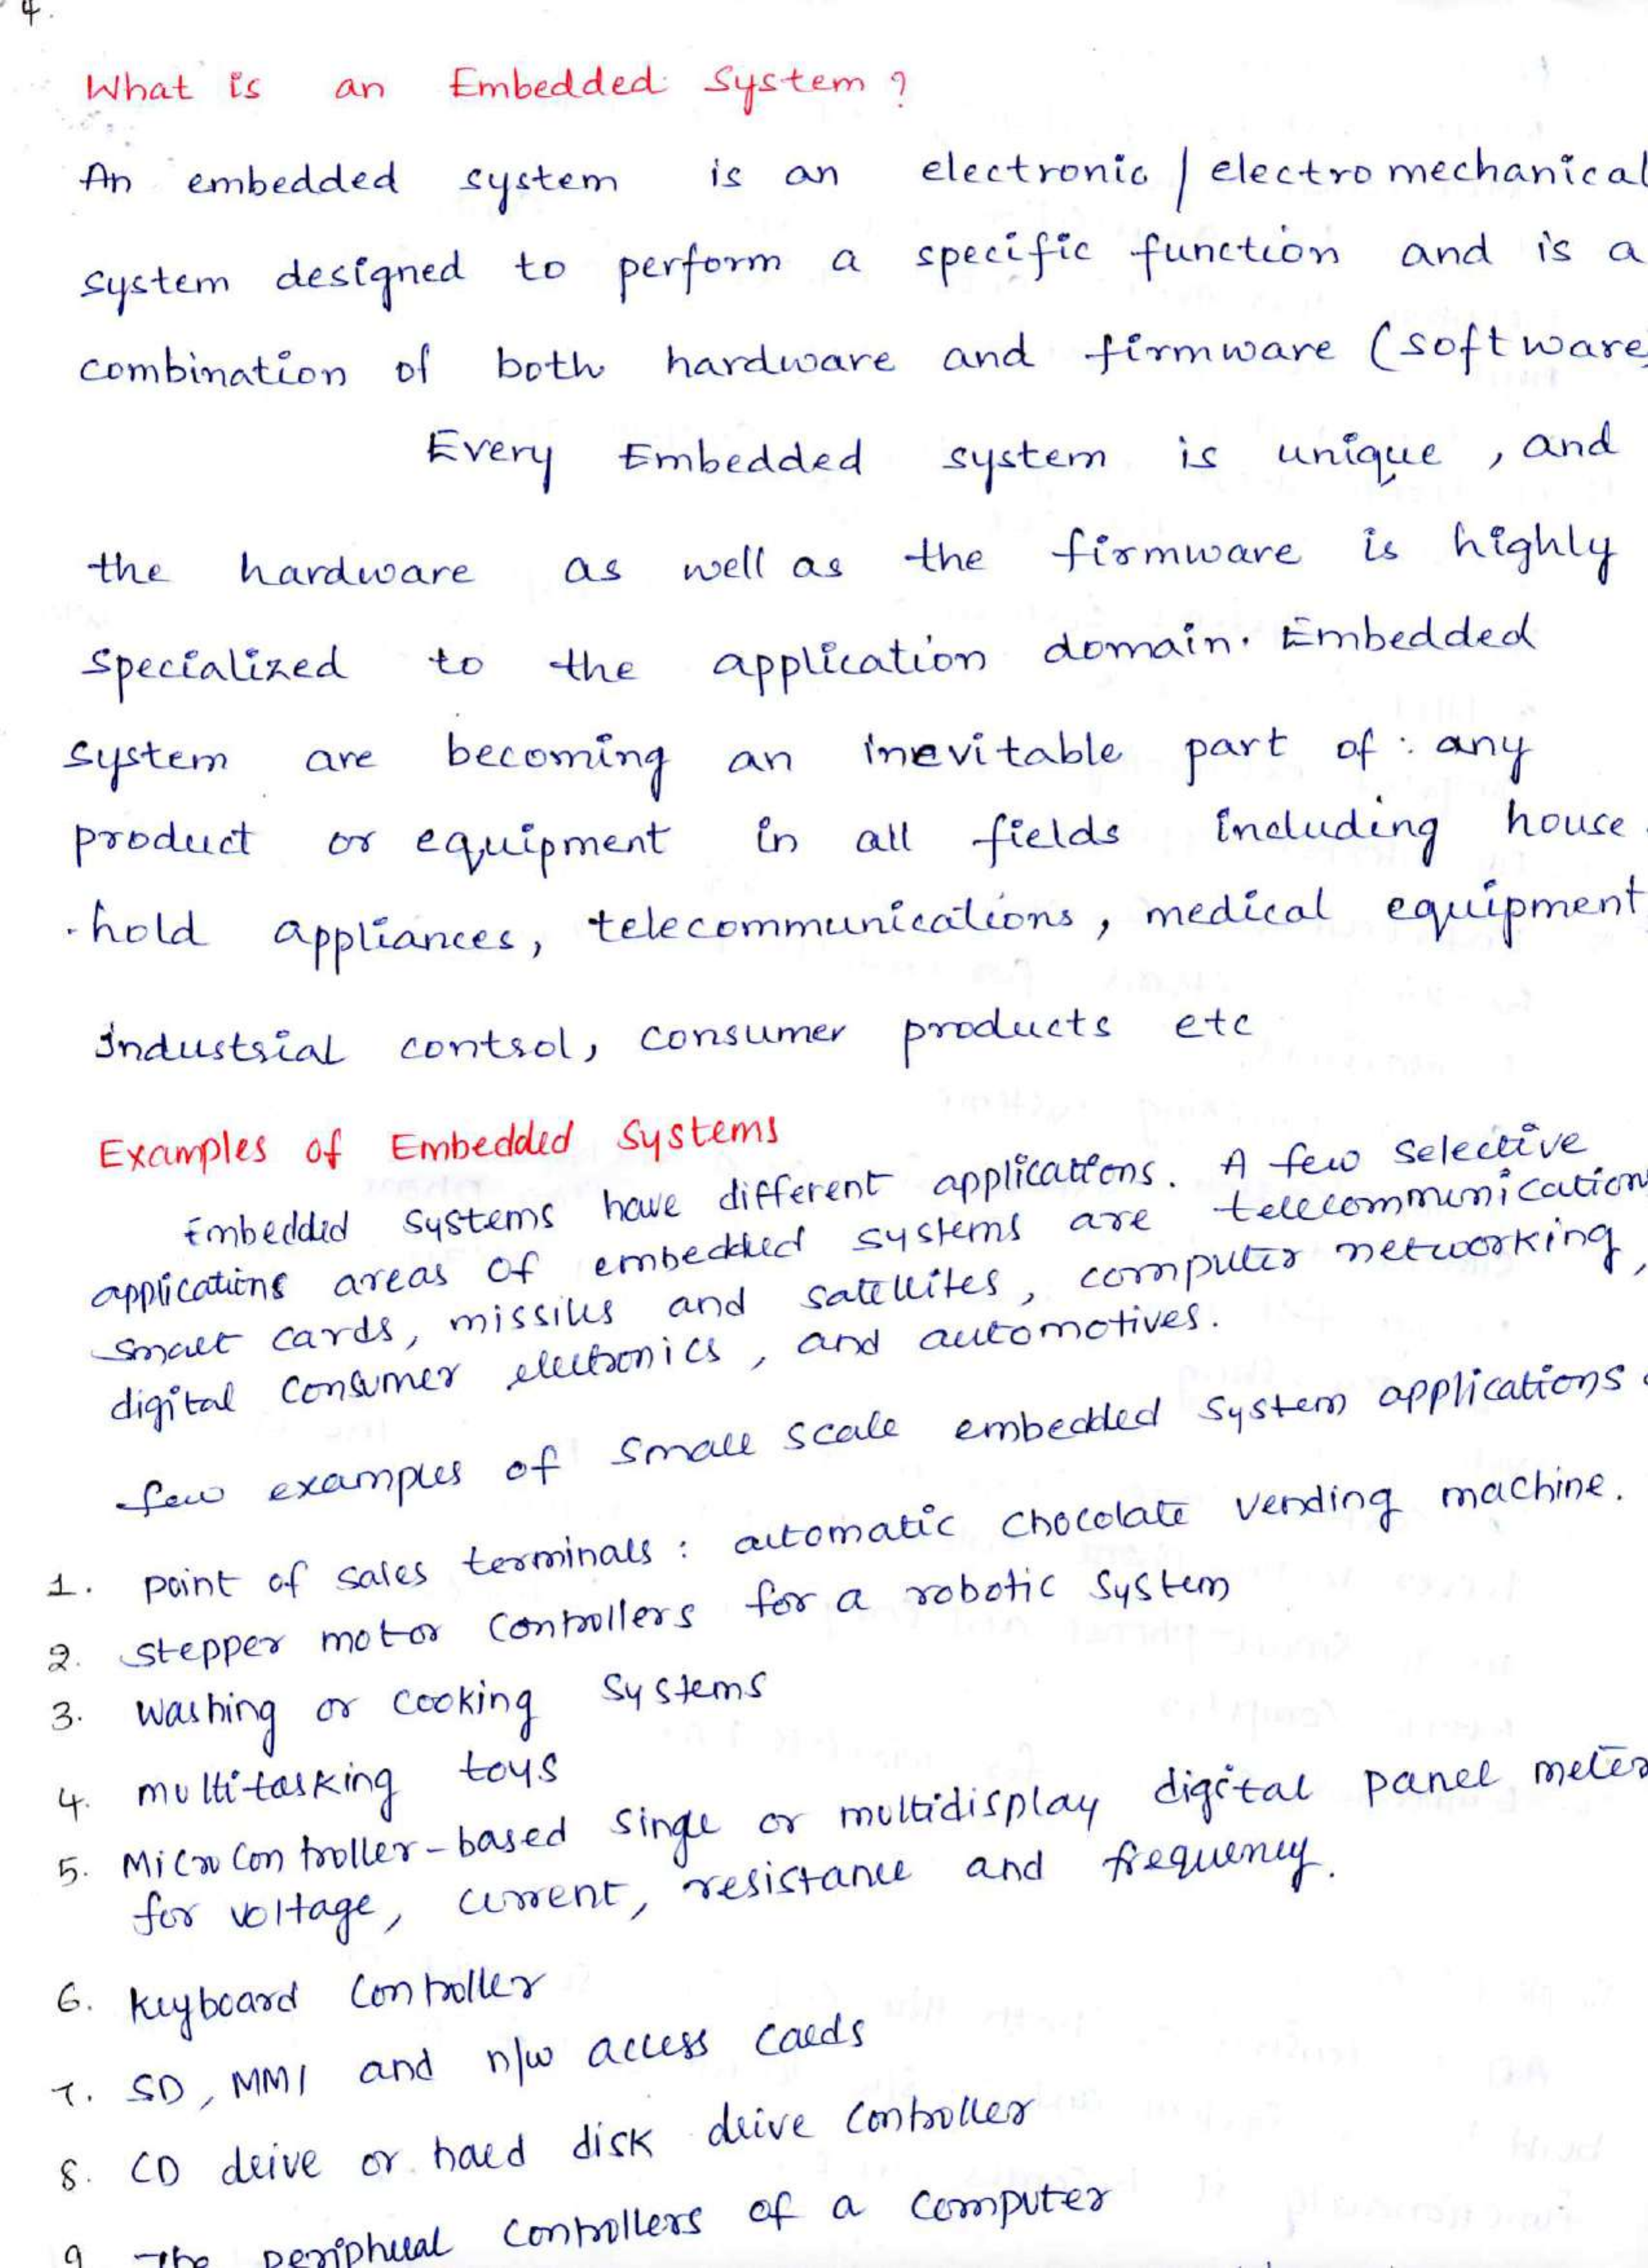 4.
What is an Embedded System ?
An embedded system is an electronic / electromechanical
system designed to perform a specific function and is a
combination of both hardware and firmware (software
Every Embedded system is unique , and
the hardware as well as the firmware is highly
specialized to the application domain. Embedded
system are becoming an inevitable part of any
product or equipment in all fields including house
-hold appliances, telecommunications, medical equipment
industrial control, consumer products etc
Examples of Embedded Systems
Embedded systems have different applications. A few Selective
applications areas of embedded systems are telecommunication
smart cards, missiles and satellites, computer networking,
digital consumer electronics, and automotives.
few examples of small scale embedded system applications
1. point of sales terminals : automatic chocolate vending machine.
2. stepper motor controllers for a robotic system
3. washing or cooking systems
4. multitasking toys
5. Microcontroller-based singe or multidisplay digital panel meter
for voltage, current, resistance and frequency.
6. keyboard controller
7. SD, MMI and n/w access cards
8. CD drive or hard disk drive controller
9. The peripheral controllers of a computer